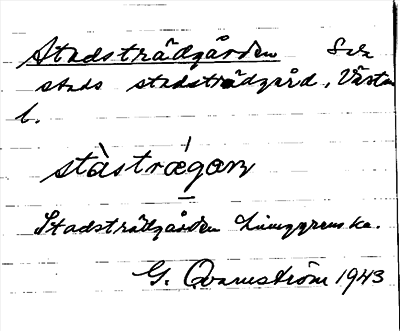 Stadsträdgården Sala
stads stadsträdgård, Västm
l.
stàstrægaɲ
Stadsträdgården Ljunggrenska.
G. Qvarnström 1943